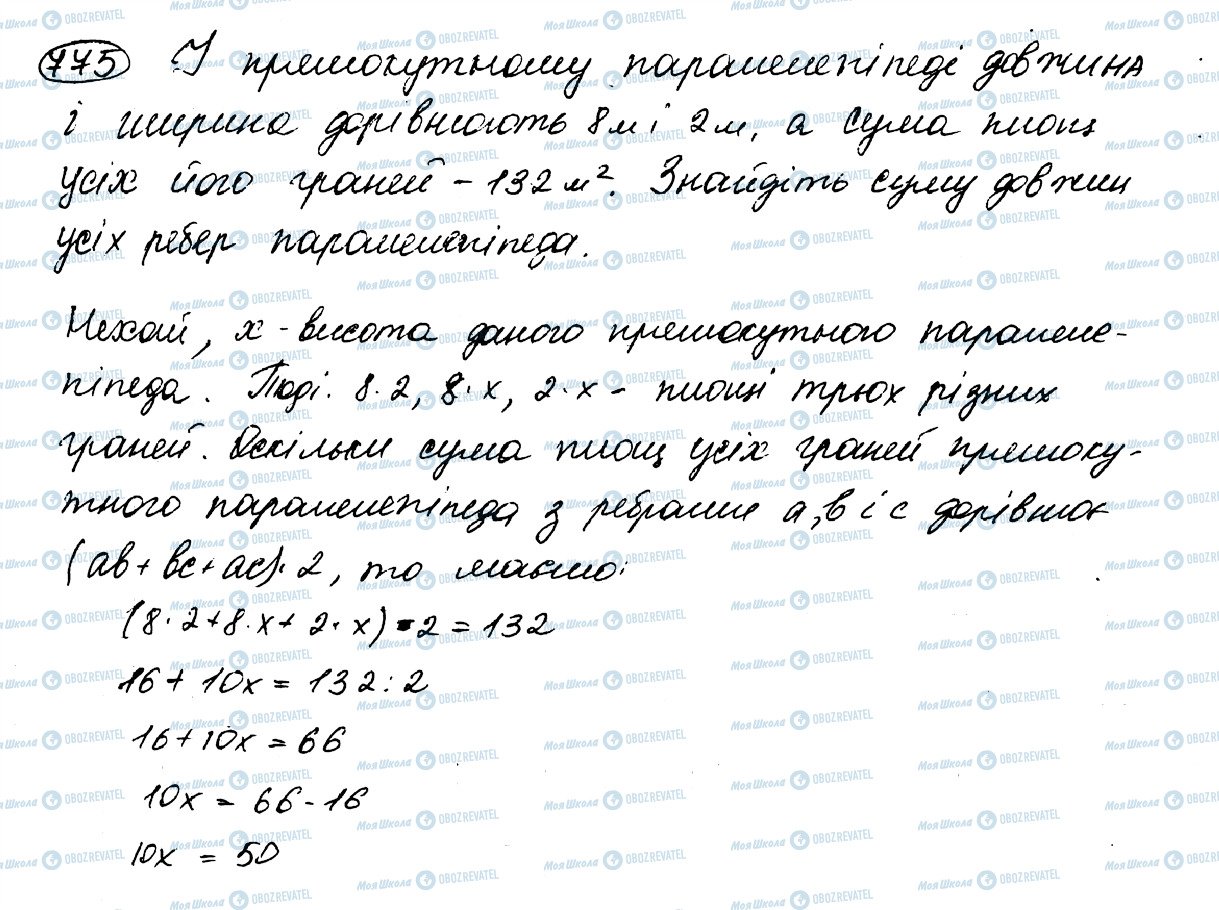 775 У прямокутному паралелепіпеді довжина
і ширина дорівнюють 8 м і 2 м, а сума площ
усіх його граней – 132 м². Знайдіть суму довжин
усіх ребер паралелепіпеда.
Нехай, x - висота даного прямокутного паралеле-
піпеда. Тоді. 8·2, 8·x, 2·x - площі трьох різних
граней. Оскільки сума площ усіх граней прямоку-
тного паралелепіпеда з ребрами a, b і c дорівнює
(ab + bc + ac)·2, то маємо:
(8·2 + 8·x + 2·x)·2 = 132
16 + 10x = 132 : 2
16 + 10x = 66
10x = 66 - 16
10x = 50